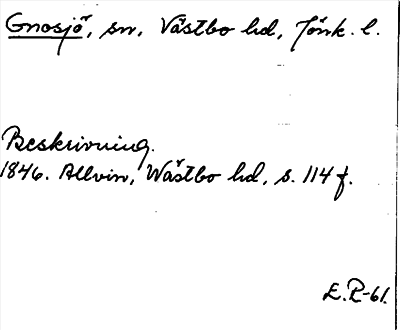 Gnosjö, sn, Västbo hd, Jönk. l.
Beskrivning.
1846. Allvin, Wästbo hd, s. 114 f.
E.P-61.